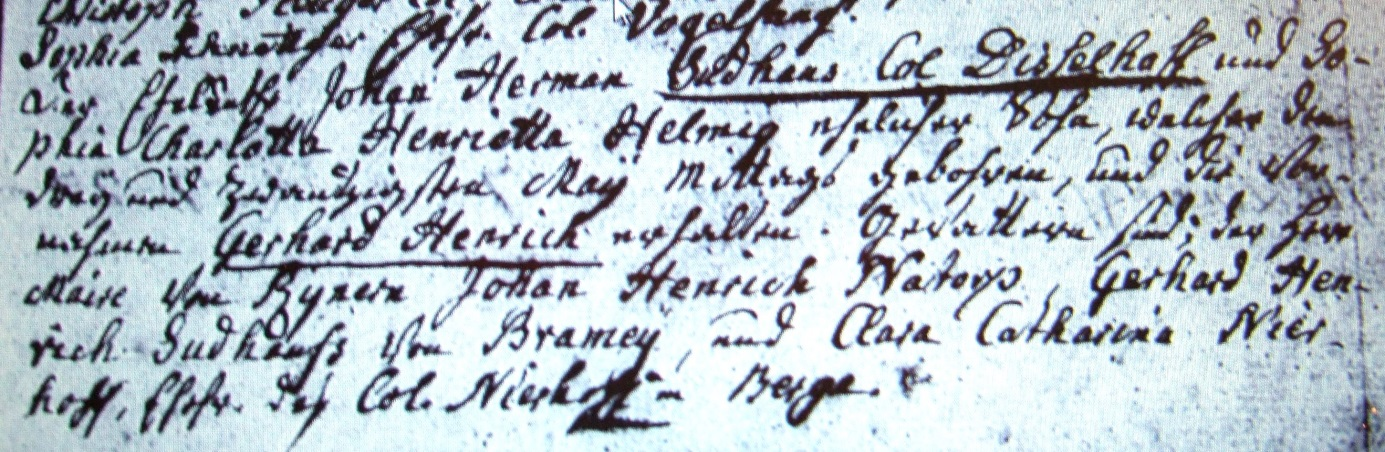 Christoph
Sophia Ehefr. Col. Vogelsang.
Der Eheleuthe Johan Herman Sudhaus Col Disselhoff und So-
phia Charlotta Henrietta Helmig ehelicher Sohn, welcher den
drey und zwantzigsten May Mittags gebohren, und die Vor-
nahmen Gerhard Henrich erhalten. Gevattern sind; der Herr
Maire von Rynern Johan Henrich Natorp, Gerhard Hen-
rich Sudhauss von Bramey, und Clara Catharina Nier-
hoff, Ehefr. des Col. Nierhoff in Berge.